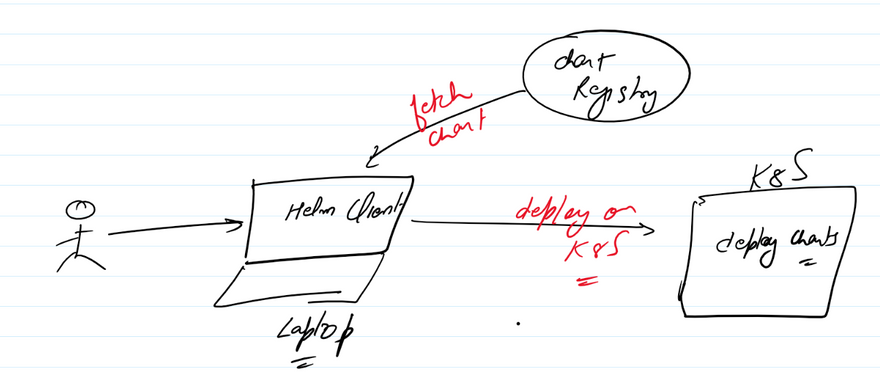 chart
Registry
fetch
chart
K8S
Helm Client
deploy on
K8S
deploy charts
Laptop